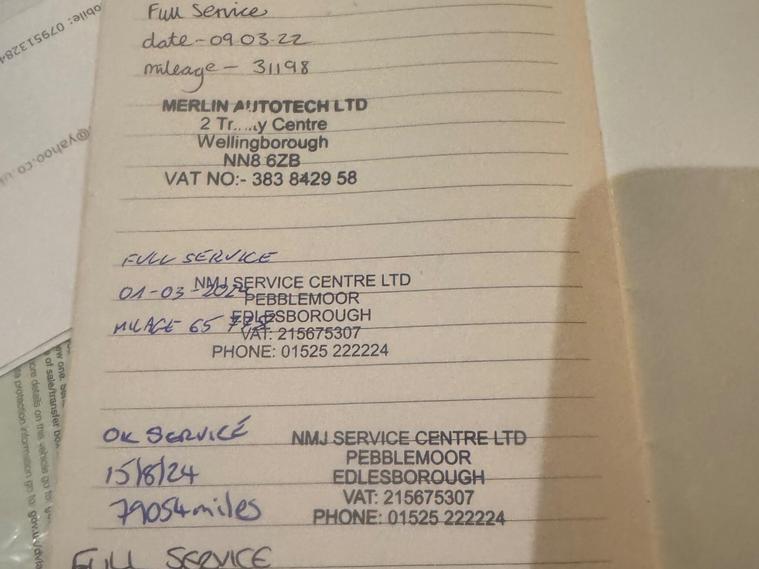 Full Service
date - 09.03.22
mileage - 31198
MERLIN AUTOTECH LTD
2 Centre
Wellingborough
NN8 6ZB
VAT NO:- 383 8429 58
FULL SERVICE
NMJ SERVICE CENTRE LTD
01-03-2024
PEBBLEMOOR
EDLESBOROUGH
MILAGE 65
VAT: 215675307
PHONE: 01525 222224
OIL SERVICE
15/8/24
79054 miles
NMJ SERVICE CENTRE LTD
PEBBLEMOOR
EDLESBOROUGH
VAT: 215675307
PHONE: 01525 222224
FULL SERVICE
obile: 079513284
@yahoo.co.uk
of sale/transfer
ore details on this vehicle go to
protection information go to gov.uk/dvla